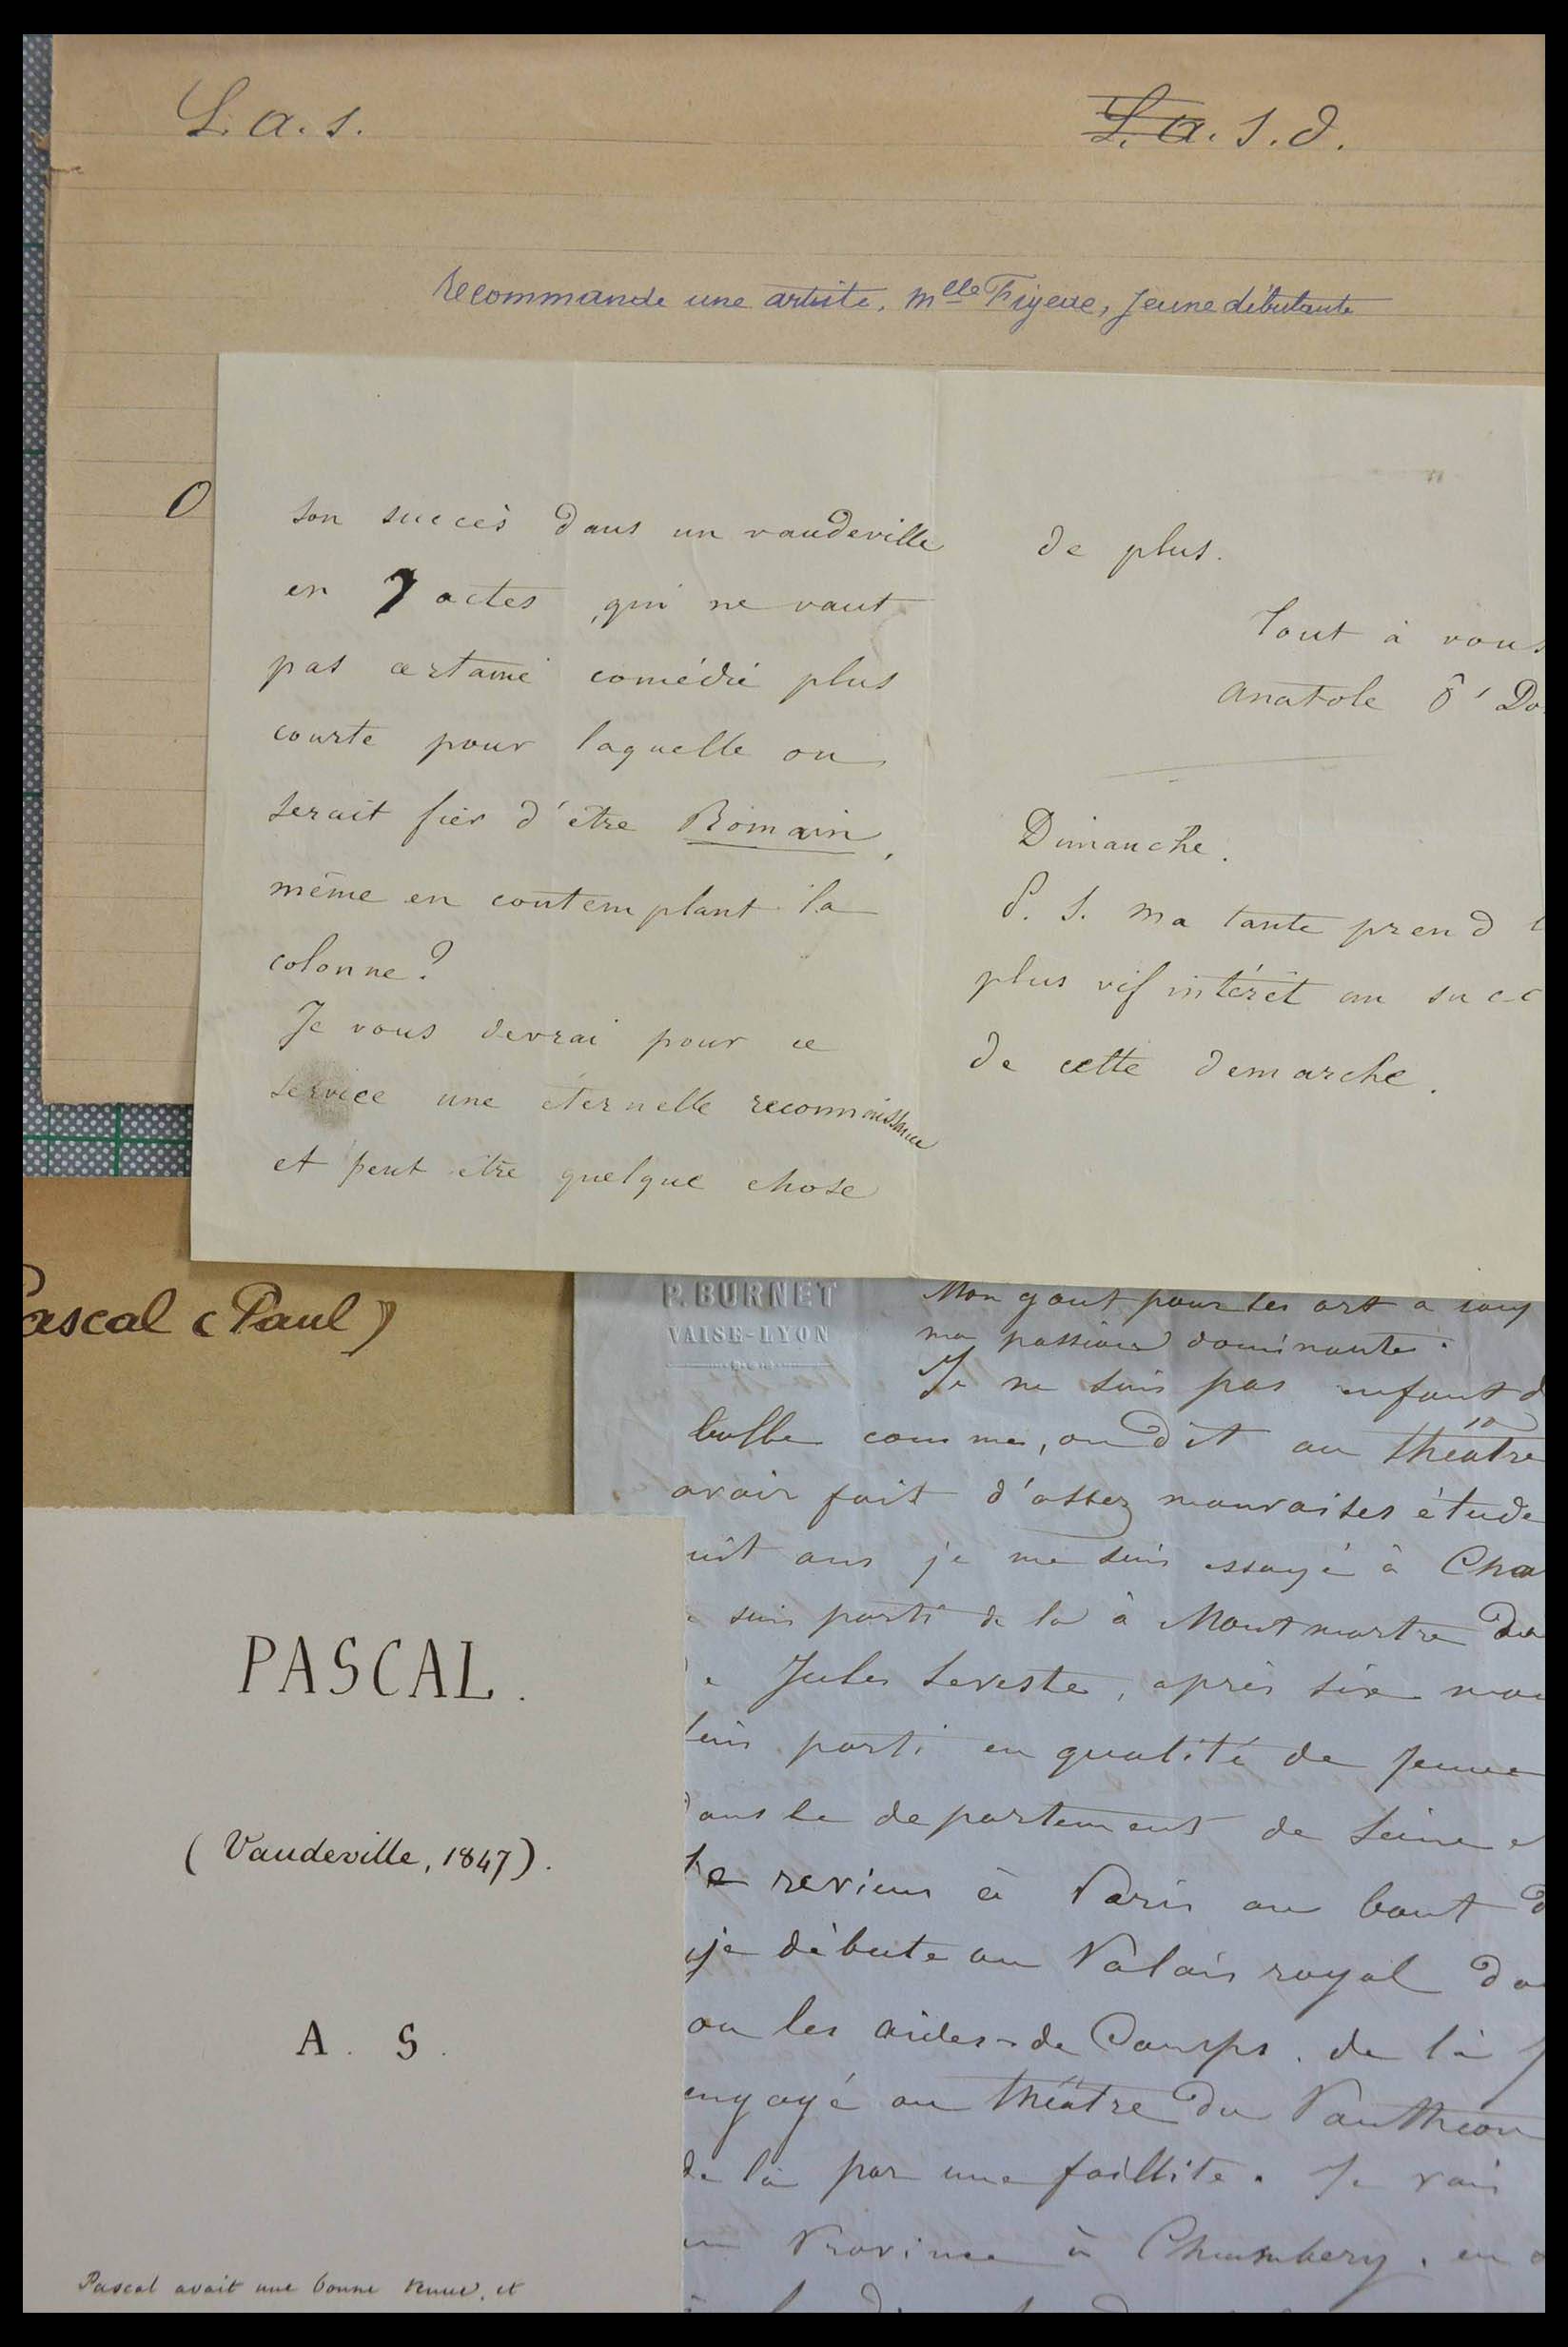 L. a. s.
L. a. s. d.
recommande une artiste, Mlle Figeac, jeune débutante
O
son succès dans un vaudeville
en 7 actes, qui ne vaut
pas certaine comédie plus
courte pour laquelle on
serait fier d'être Romain,
même en contemplant la
colonne?
Je vous devrai pour ce
service une éternelle reconnaissance
et peut être quelque chose
de plus.
Tout à vous
Anatole d' Do
Dimanche.
P. S. Ma tante prend l
plus vif intérêt au succ
de cette demarche.
Pascal (Paul)
PASCAL.
(Vaudeville, 1847).
A. S.
Pascal avait une bonne tenue, et
P. BURNET
VAISE-LYON
Mon gout pour les art a
ma passion dominante.
Je ne suis pas enfant d
balle comme, on dit au théâtre
avoir fait d'assez mauvaises étude
uit ans je me suis essayé à Cha
suis parti de la à Montmartre
Jules Seveste, après six moi
suis parti en qualité de jeune
dans le departement de Seine e
Je reviens à Paris au bout d
je débute au Palais royal da
ou les aides-de Camps. de là j
engagé au théâtre du Pantheon
de là par une faillite. Je vais
en Province à Chambery. en